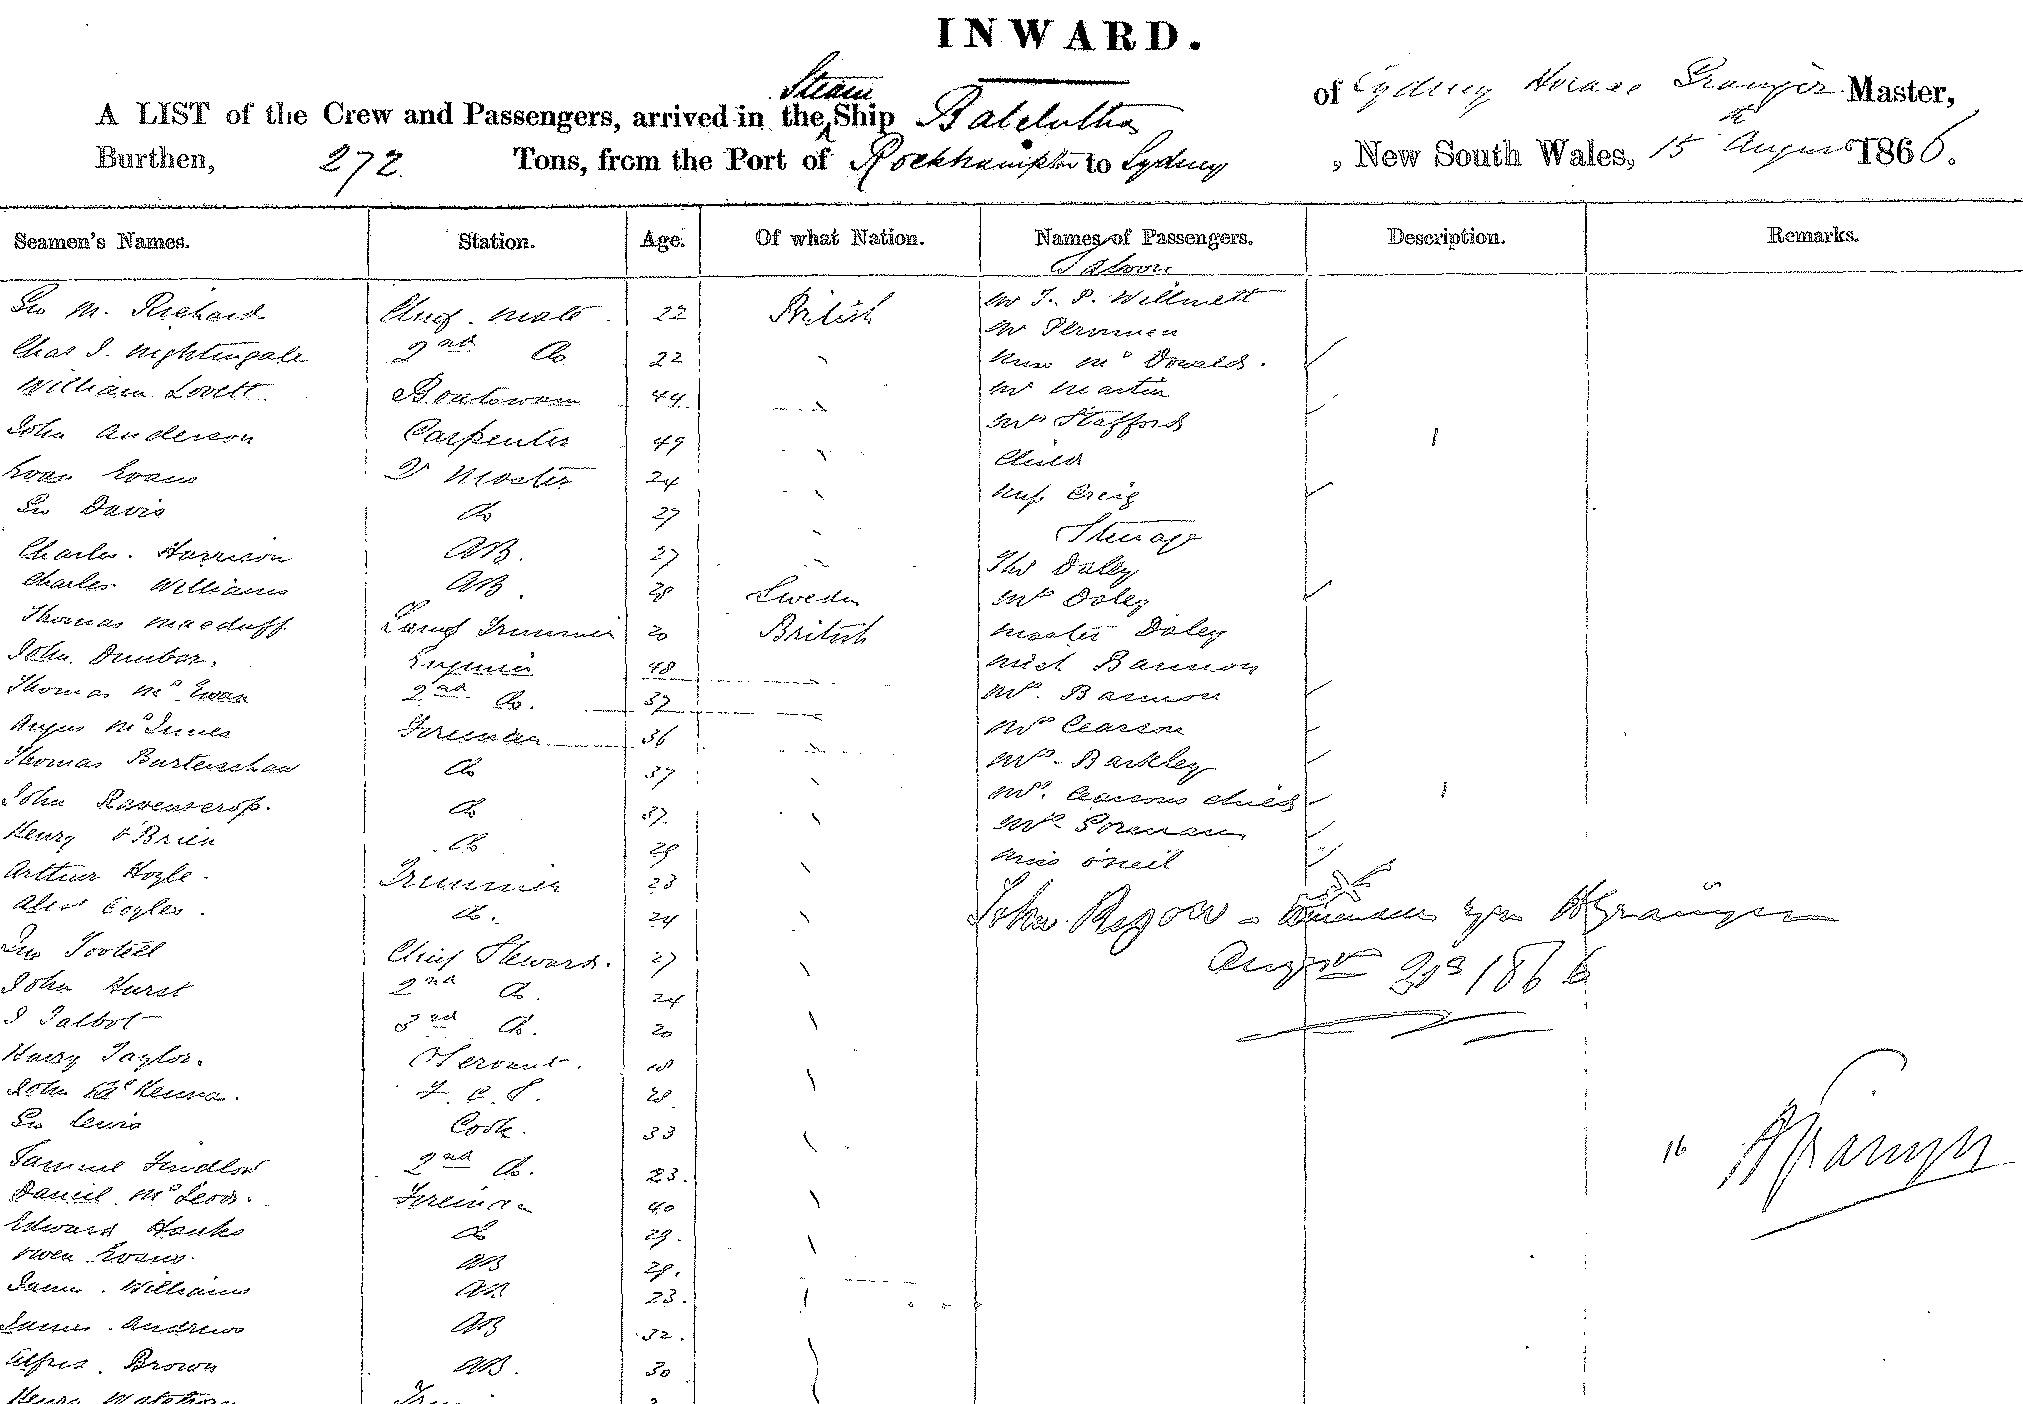 INWARD.
A LIST of the Crew and Passengers, arrived in the Steam Ship Balclutha of Sydney Horace Granger Master,
Burthen, 272 Tons, from the Port of Rockhampton to Sydney , New South Wales, 15th August 1866.
Seamen's Names. Station. Age. Of what Nation. Names of Passengers. Description. Remarks.
Saloon
Geo M. Richard Chief Mate 22 British Mr J. P. Willmett
Mr
Chas J. Nightingale 2nd Do 22 " Miss McDonald.
William Lovett Boatswain 44 " Mr Martin
John Anderson Carpenter 49 " Mrs Stafford 1
Child
Evan Evans Qr Master 24 " Miss Creig
Geo Davis Do 27 " Steerage
Charles Harrison AB. 27 " Thos Daley
Charles Williams AB. 28 Sweden Mrs Daley
Thomas Macduff Lamp Trimmer 20 British Master Daley
John Dunbar. Engineer 48 " Mich Bannon
Thomas McEwan 2nd Do. 37 " Mrs. Bannon
Angus McInnes Fireman 36 " Mrs Cearson
Thomas Burtenshaw Do 37 " Mrs. Barkley
John Ravenscrop. Do 37. " Mrs. Cearsons child 1
Henry O'Brien Do 29 " Mrs Gorman
Arthur Hoyle. Trimmer 23 " Miss O'Neil
Alex Coyles. Do. 24 " John Regow
Jno Tootell Chief Steward. 27 " August 21st 1866
John Hurst 2nd Do. 24 "
J Talbot 3rd Do. 20 "
Harry Taylor. Servant. 18 "
John McKenna. F. C. S. 28 "
Geo Lewis Cook. 33 "
Samuel 2nd Do. 23. 16 H Granger
Daniel McLeod. Fireman 40 "
Edward Hanks Do 29. "
Owen Evans. AB 29.
James Williams AB 23.
James Andrews AB 32.
Alfred Brown AB. 30
Henry